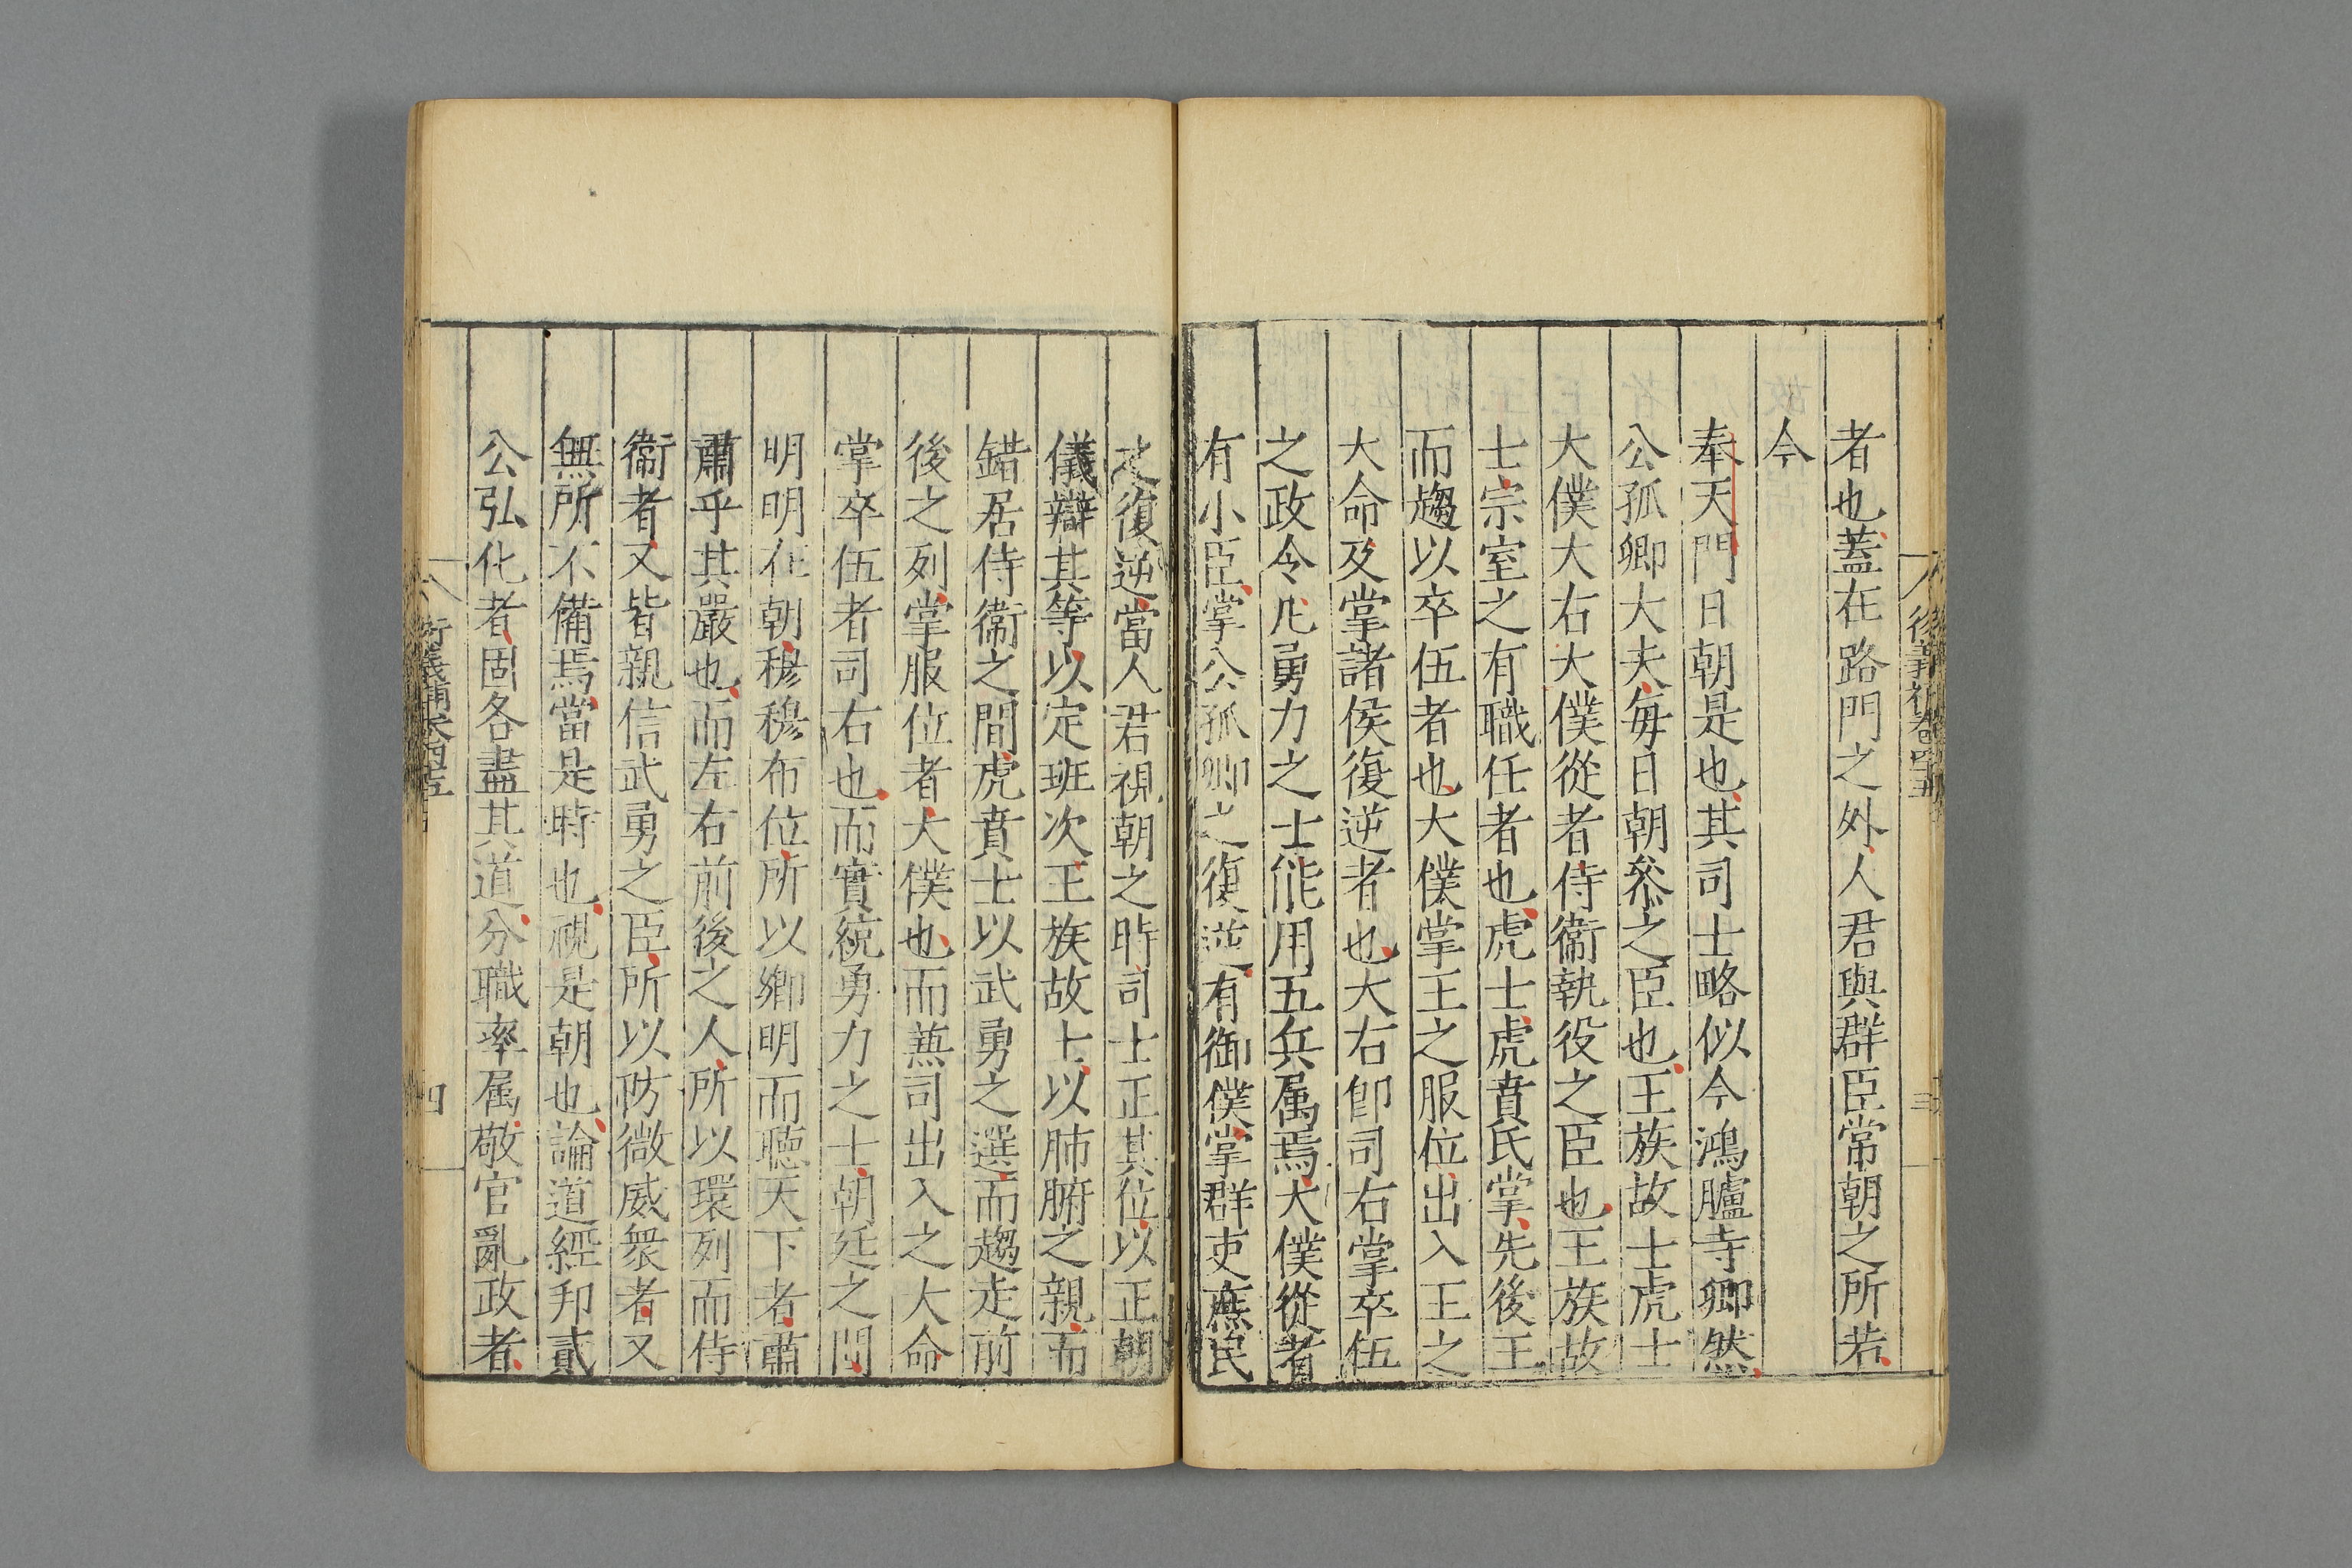 者也蓋在路門之外人君與群臣常朝之所若
今
奉天門日朝是也其司士略似今鴻臚寺卿然
公孤卿大夫每日朝叅之臣也王族故士虎士
大僕大右大僕從者侍衞執役之臣也王族故
士宗室之有職任者也虎士虎賁氏掌先後王
而趨以卒伍者也大僕掌王之服位出入王之
大命及掌諸侯復逆者也大右卽司右掌卒伍
之政令凡勇力之士能用五兵属焉大僕從者
有小臣掌公孤卿之復逆有御僕掌群吏庶民
之復逆當人君視朝之時司士正其位以正朝
儀辯其等以定班次王族故士以肺腑之親而
錯居侍衞之間虎賁士以武勇之選而趨走前
後之列掌服位者大僕也而兼司出入之大命
掌卒伍者司右也而實統勇力之士朝廷之間
明明在朝穆穆布位所以鄉明而聽天下者肅
肅乎其嚴也而左右前後之人所以環列而侍
衞者又皆親信武勇之臣所以防微威衆者又
無所不備焉當是時也視是朝也論道經邦貳
公弘化者固各盡其道分職率属敬官亂政者
衍義補卷四十五
四